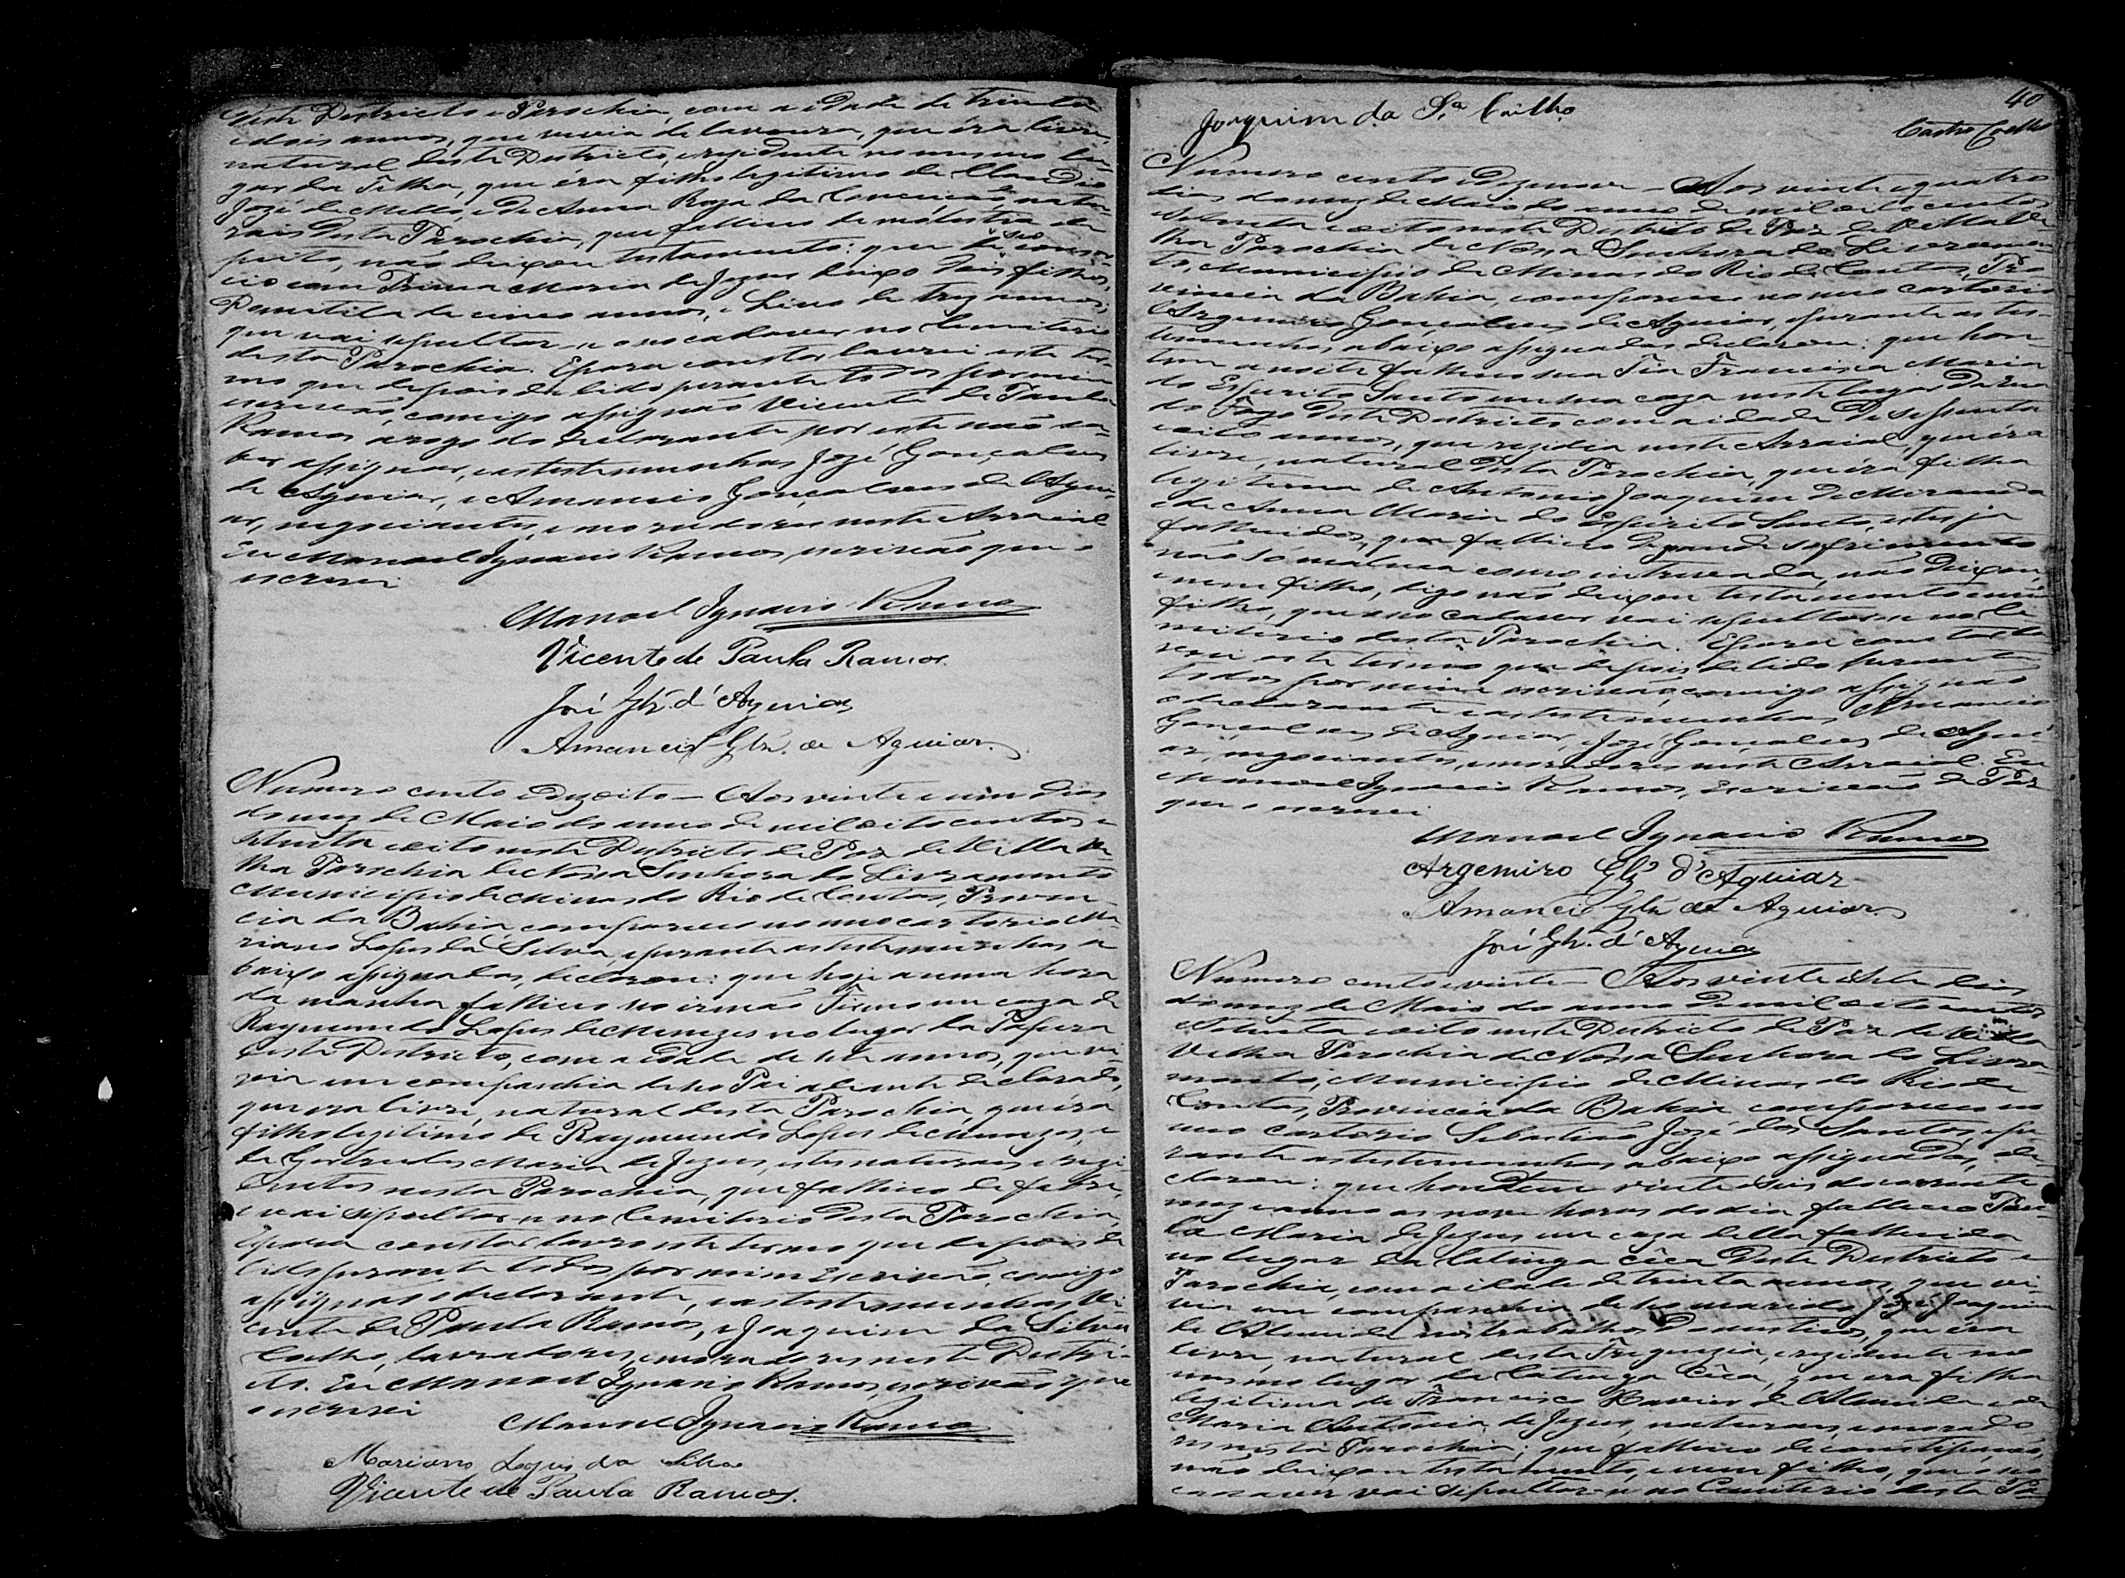 deste Districto e Parochia, com a idade de trinta
e dois annos, que vivia de lavoura, que éra livre,
natural deste Districto, e rezidente no mesmo lu-
gar da Ilha, que éra filho legitimo de Claudio
José de Mello, e de Anna Roza da Conceição, natu-
raes desta Parochia, que falleceu de molestia de
peito, não deixou testamento: que de seo consor-
cio com Maria de Jezus deixa dois filhos,
de cinco annos, e Lino de trez annos;
que vai sepultar-se o seo cadaver no Cemiterio
desta Parochia. E para constar lavrei este ter-
mo que depois de lido perante todos por mim
escrivão, comigo assignão Vicente de Paula
Ramos arogo do declarante por este não sa-
ber assignar, e as testemunhas José Gonçalves
de Aguiar, e Amancio Gonçalves de Agui-
ar, negociantes, e moradores neste Arraial
Eu Manoel Ignacio Ramos, escrivão que o
escrevi
Manoel Ignacio Ramos
Vicente de Paula Ramos.
José Glz. d' Aguiar
Amancio Glz. de Aguiar.
Numero cento e dezoito — Aos vinte e um dias
do mez de Maio do anno de mil oito centos e
setenta e oito neste Districto de Paz de Villa Ve-
lha Parochia de Nossa Senhora do Livramento
Municipio de Minas do Rio de Contas, Provin-
cia da Bahia, compareceu no meo cartorio Ma-
riano Lopes da Silva, e perante as testemunhas a
baixo assignadas, declarou: que hoje a uma hora
da manhã falleceu seo irmão Firmo em caza de
Raymundo Lopes de Menezes no lugar da
deste Districto, com a idade de annos, que vi-
via em companhia de seo Pai acima declarado,
que era livre, natural desta Parochia, que éra
filho legitimo de Raymundo Lopes de Menezes, e
de Gertrudes Maria de Jezus, estes naturaes e rezi-
dentes nesta Parochia, que falleceu de febre,
e vai sepultar-se no Cemiterio desta Parochia,
E para constar lavro este termo que depois de
lido perante todos por mim Escrivão, comigo
assignão o declarante, e as testemunhas Vi-
cente de Paula Ramos, e Joaquim da Silva
Coelho, lavradores, e moradores neste Distri-
cto. Eu Manoel Ignacio Ramos, escrivão que
o escrevi
Manoel Ignacio Ramos
Mariano Lopes da Silva
Vicente de Paula Ramos.
40
Joaquim da Sa. Coelho
Castro Coelho
Numero cento e dezenove — Aos vinte e quatro
dias do mez de Maio do anno de mil e oito centos
setenta e oito neste Districto de Paz de Villa Ve-
lha Parochia de Nossa Senhora do Livramen-
to, Municipio de Minas do Rio de Contas, Pro-
vincia da Bahia, compareceu no meo cartorio
Argemiro Gonçalves de Aguiar, e perante as tes-
temunhas, abaixo assignadas declarou: que hon-
tem a noite falleceo sua Tia Francisca Maria
do Espirito Santo em sua caza neste lugar da rua
do Fogo deste Districto com a idade de setenta
e oito annos, que rezidia neste Arraial, que éra
livre, natural desta Parochia, que éra filha
legitima de Antonio Joaquim de Miranda
e de Anna Maria do Espirito Santo, estes já
fallecidos, que falleceu de grande sofrimento
não só maluca como entrevada, não deixou,
e nem filho, digo não deixou testamento e nem
filho, que seo cadaver vai sepultar-se no Ce
miterio desta Parochia. E para constar la
vrei este termo que depois de lido perante
todos por mim escrivão, comigo assignão
o declarante e as testemunhas Amancio
Gonçalves de Aguiar, e José Gonçalves de Agui-
ar, negociantes, e moradores neste Arraial. Eu
Manoel Ignacio Ramos, Escrivão de Paz
que o escrevi
Manoel Ignacio Ramos
Argemiro Glz d'Aguiar
Amancio Glz de Aguiar
José Glz. d' Aguiar
Numero cento e vinte — Aos vinte e sete dias
do mez de Maio do anno de mil e oito centos
setenta e oito neste Districto de Paz de Villa
Velha Parochia de Nossa Senhora do Livra-
mento, Municipio de Minas do Rio de
Contas, Provincia da Bahia compareceu no
meo cartorio Sebastião José dos Santos, e pe-
rante as testemunhas abaixo assignadas, de-
clarou: que hontem vinte e seis do corrente
mez e anno as nove horas do dia falleceo Pau-
la Maria de Jezus em caza della fallecida
no lugar da Catinga deste Districto e
Parochia, com a idade de trinta annos, que vi-
via em companhia de seo marido José Joaquim
de Almeida nos trabalhos domesticos, que éra
livre, natural desta Freguezia, e rezidente no
mesmo lugar da Catinga, que era filha
legitima de Francisco Xavier de Almeida e de
Maria Antonia de Jezus, naturaes, e morado-
res nesta Parochia; que falleceu de constipação,
não deixou testamento, e nem filho, que o seo
cadaver vai sepultar-se no Cemiterio desta Pa-